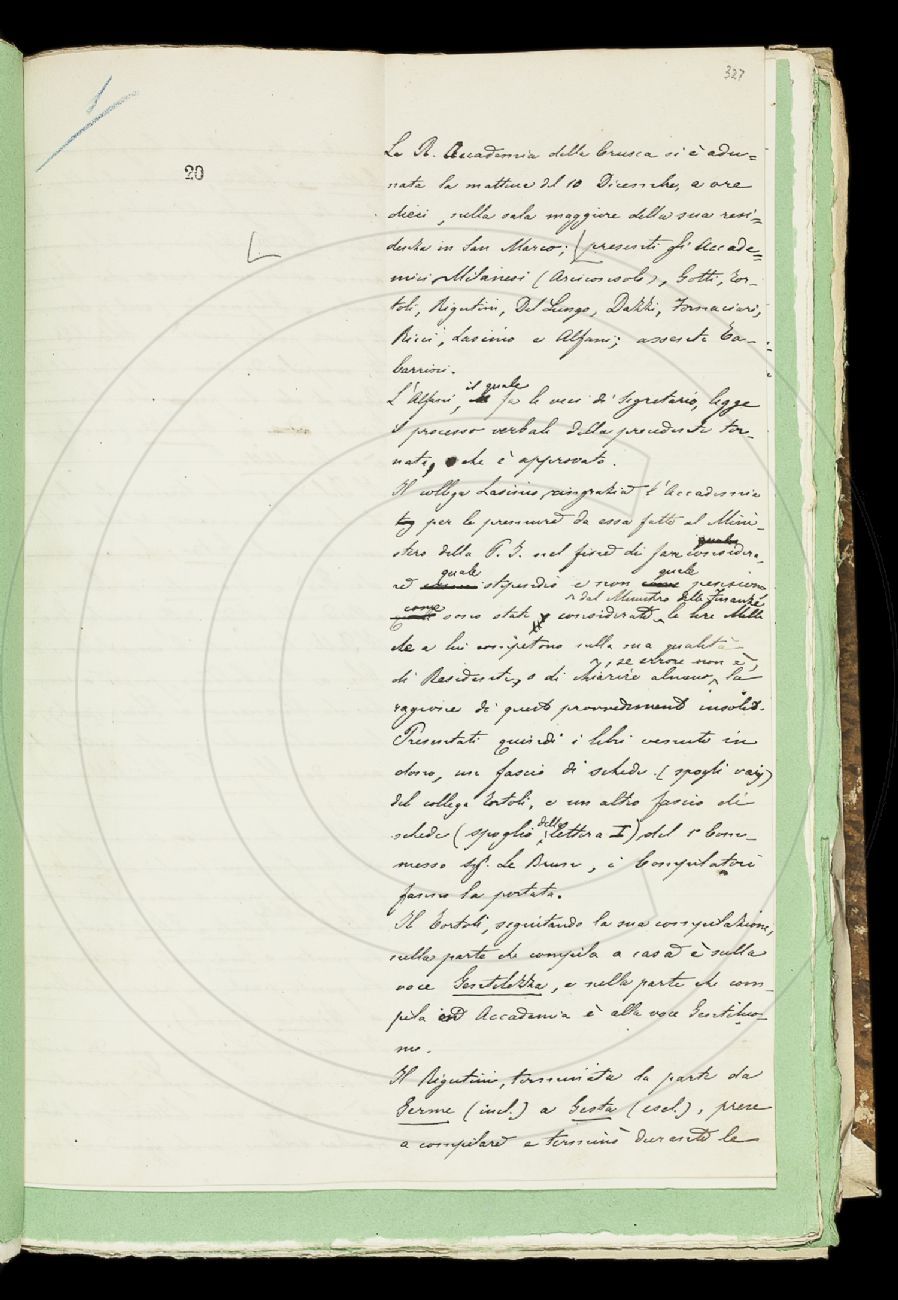 327
20
La R. Accademia della Crusca si è adu=
nata la mattina del 10 Dicembre, a ore
dieci, nella sala maggiore della sua resi=
denza in San Marco; (presenti gli Accade=
mici Milanesi (Arciconsolo), Gotti, Tor-
toli, Rigutini, Del Lungo, Dazzi, Fornaciari,
Ricci, Lasinio e Alfani; assente Ta-
barrini.
L'Alfani, il quale fa le veci di Segretario, legge
il processo verbale della precedente tor-
nata, che è approvato.
Il collega Lasinio ringrazia l'Accademia
per le premure da essa fatte al Mini-
stero della P. I. nel fine di fare considera-
re quale stipendio e non quale pensione,
come sono state considerate dal Ministro delle Finanze, le lire Mille
che a lui competono nella sua qualità
di Residente, o di chiarire almeno, se errore non è, la
ragione di questi provvedimenti insoliti.
Presentati quindi i libri venuti in
dono, un fascio di schede (spogli varj)
del collega Tortoli, e un altro fascio di
schede (spoglio della lettera I) del 1º Com-
messo sig. Le Brun, i Compilatori
fanno la portata.
Il Tortoli, seguitando la sua compilazione,
nella parte che compila a casa è sulla
voce Gentilezza, e nella parte che com-
pila in Accademia è alla voce Gentiluo-
mo.
Il Rigutini, terminata la parte da
Germe (incl.) a Gesta (escl.), prese
a compilare e terminò durante le